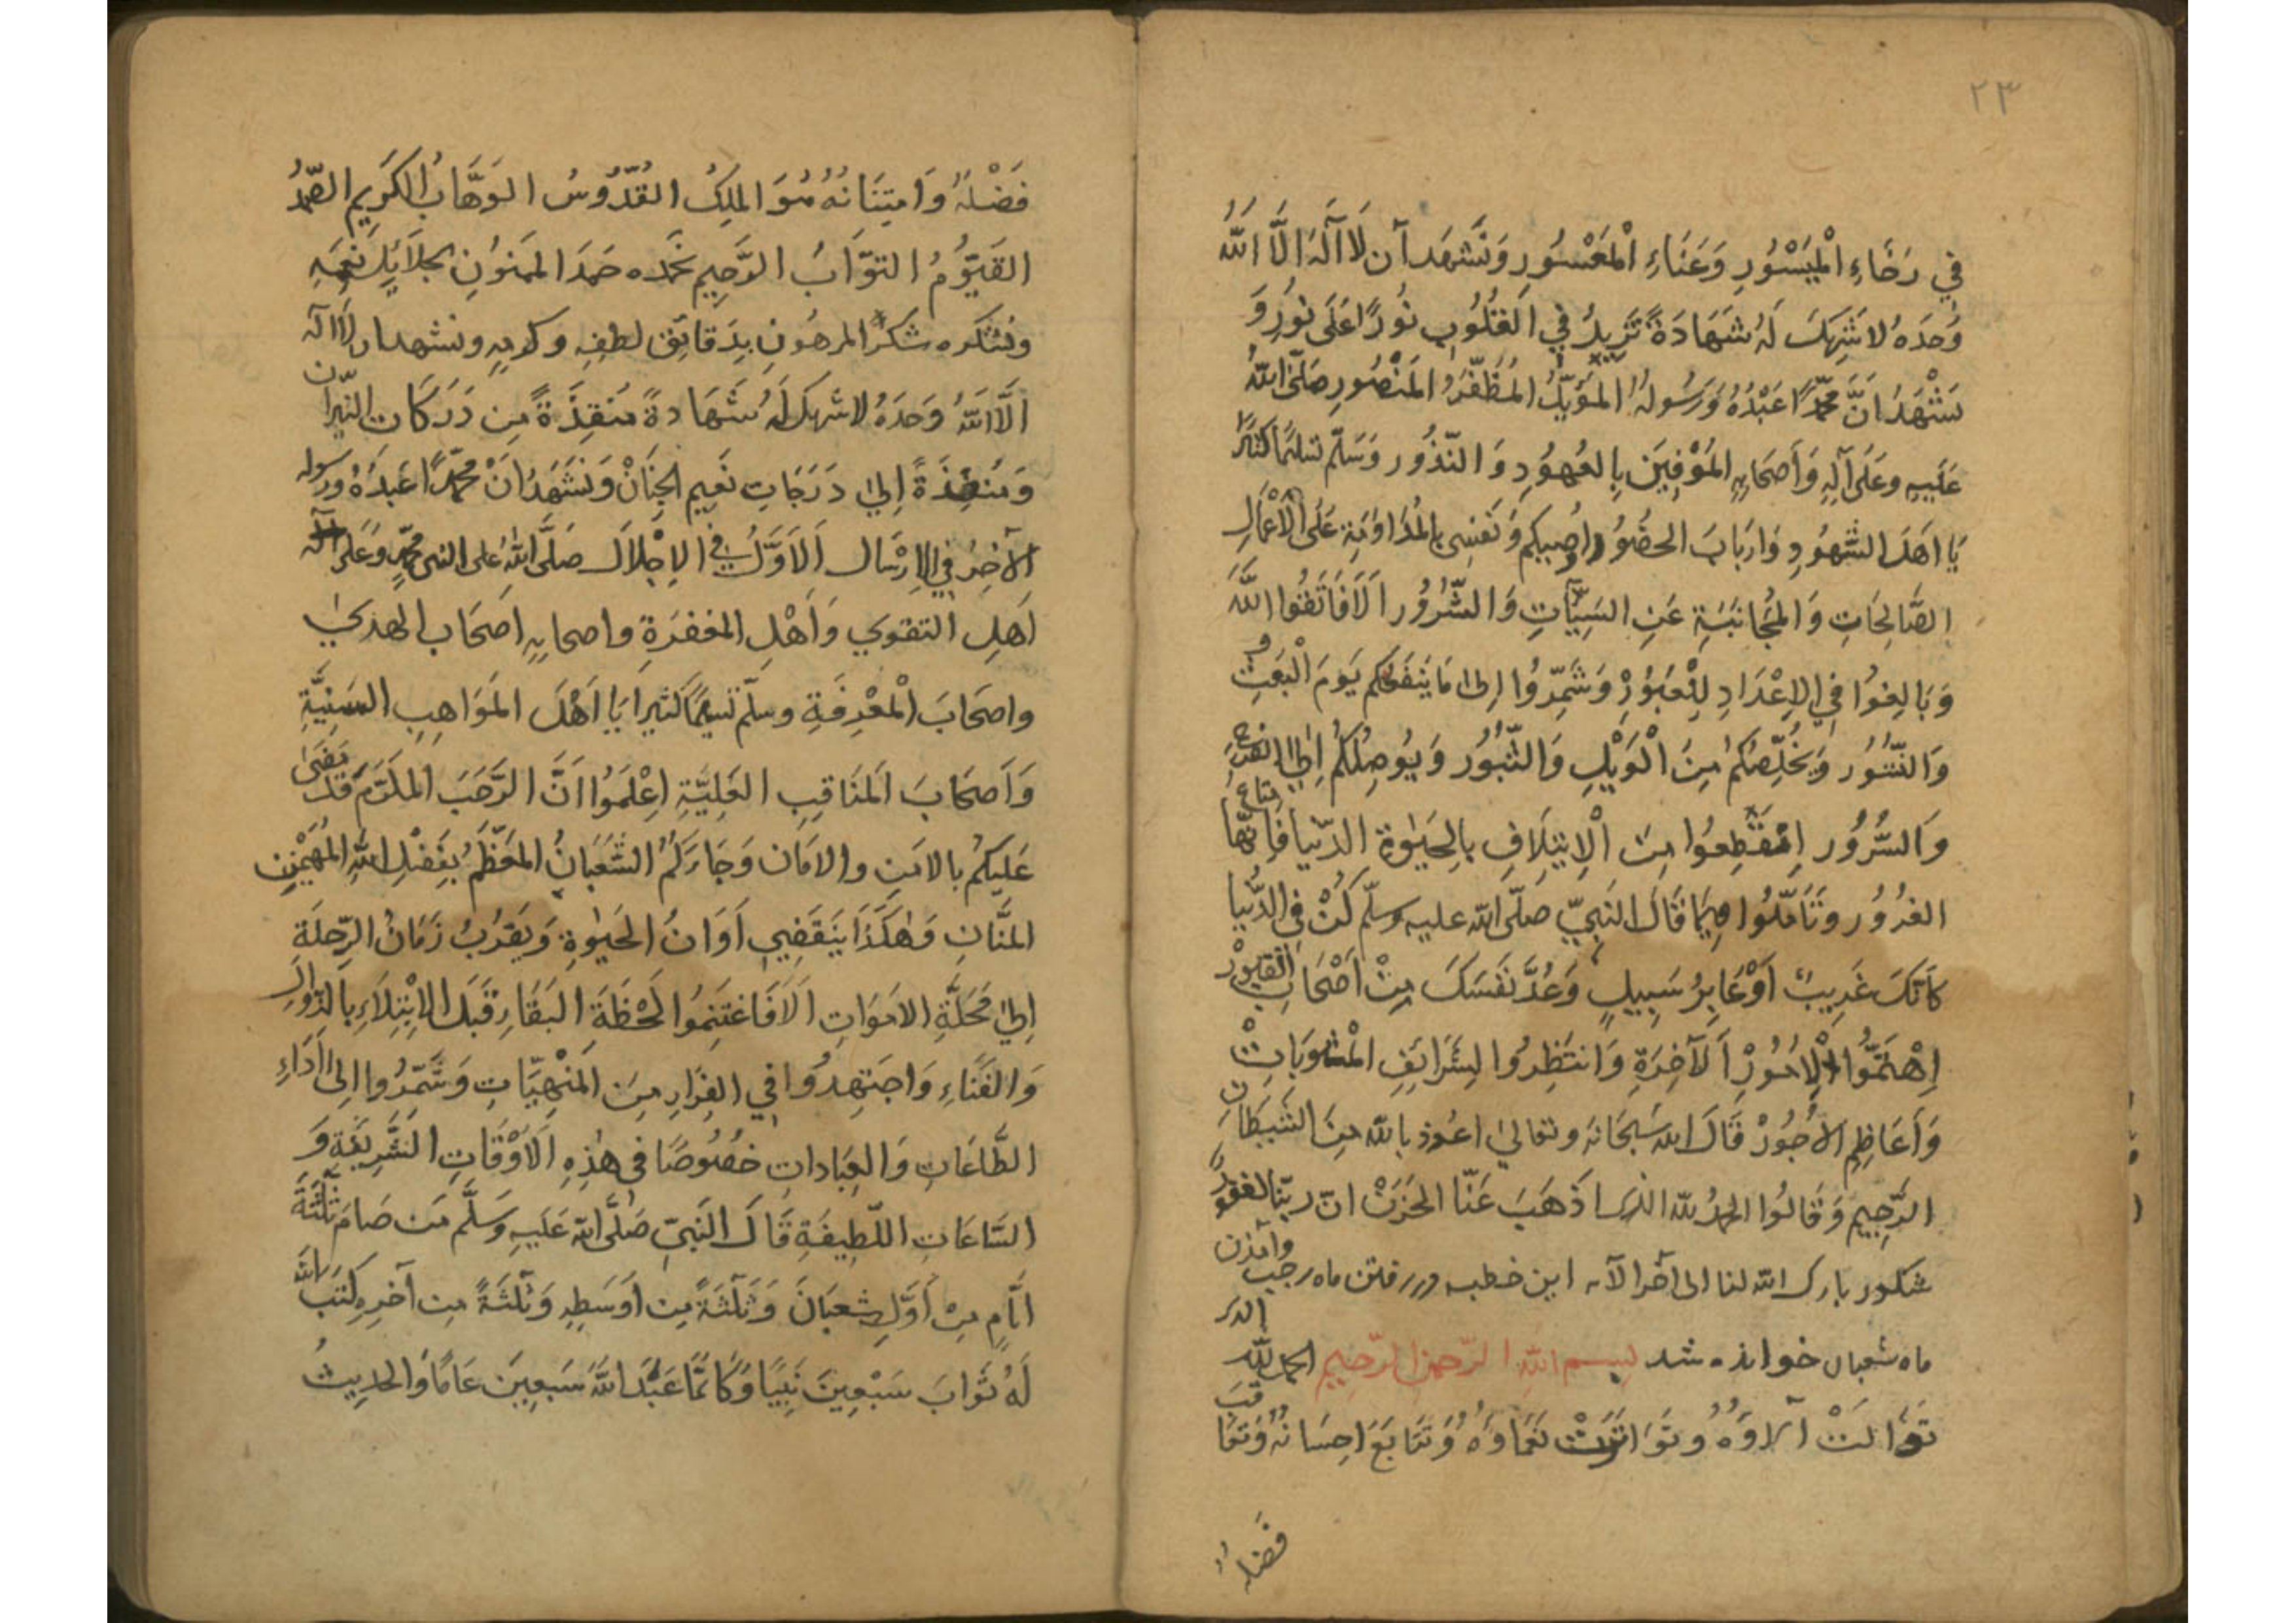 ٢٣
في رَخَاءِ الْمَيْسُورِ وَعَنَاءِ الْمَعْسُورِ وَنَشْهَد اَن لَا اِلٰهَ اِلَّا اللهُ
وَحدَهُ لا شَرِيكَ لَهُ شَهَادَةً تَزِيدُ في القُلُوبِ نُورًا عَلَى نُورِ وَ
نَشْهَدُ انَّ مُحَمَّدًا عَبْدُهُ وَرَسُولُهُ المُؤَيَّدُ المُظَفَّرُ المَنْصُورِ صَلَّى اللهُ
عَلَيهِ وعَلَى آلِهِ وَأَصحَابِهِ المُوْفِينَ بِالعُهُودِ وَالنّذُور وَسَلّم تسليمًا كثيرًا
يَا اهَلَ الشُّهُودِ وَارَبابَ الحضُورِ اوُصِيكم وَنَفسِى بِالمُدَاوَمَةِ عَلَى الاَعْمَالِ
الصَّالِحَاتِ وَالمُجَانَبَةِ عَنِ السَيِّاٰتِ وَالشُّرُور اَلَا فَاتَّقُوا اللهَ
وَبَالِغُوا فِي الاِعْدَادِ لِلْعُبُورِ وَشَمِّرُوا اِلىٰ مَا يَنفَعكم يَومَ الْبَعثِ
وَالنّشُور وَيُخَلِّصُكُمْ مِنَ الْوَيْلِ وَالثُّبُور وَيُوصِلُكُمْ اِلىٰ الفرح
وَالسُّرُور اِنقَطِعُوا مِنَ الْاِيتِلَافِ بِالحَيٰوةِ الدّنيا فَاِنَّهَا متاع
الغرُور وتَأمّلُوا فِيمَا قَالَ النَبِيّ صَلّى الله عليه وسلّم كُنْ فِي الدُّنيا
كَاَنَّكَ غَرِيبٌ اَوْعَابِرُ سَبِيلٍ وَعُدَّ نَفسَكَ مِنْ اَصْحَابِ القبورْ
اِهْتَمُّوا لِاُمُورِ الآخِرَةِ وَانتَظِرُوا لِشَرَائِفِ الْمثوبَاتْ
وَاَعَاظِمِ الاُجُورْ قَالَ الله سُبحَانَهُ وتعالىٰ اعُوذ بالله مِنَ الشَيطَانِ
الرَّجِيم وَقَالُوا الحمدُ لله الذى اَذهَبَ عَنّا الحَزَنْ انّ ربّنا لغفورٌ
شكور بارك الله لنا الى آخر الآيه اين خطبه در رفتن ماه رجب وآمدن
ماه شعبان خوانده شد بسم الله الرّحمن الرّحيم الحمد لله الذى
تَوَالَتْ آلاؤُهُ وتَوَاتَرَتْ نَعْمَاؤُهُ وَتَتَابَعَ احِسَانُهُ وَتعَاقَبَ
فَضلُهُ
فَضْلُهُ وَامتِنَانهُ هُوَ المَلِكُ القُدّوسُ الوَهَّابُ الكَرِيم الصّمدُ
القَيّومُ التوَّابُ الرَّحِيم نَحمَده حَمدَ المَمنُونِ بجلَايِلِ نِعَمِهِ
ونشكره شكرَ المرهُونِ بِدَقايَقِ لطفِهِ وكرمِهِ ونشهد ان لا اله
الَّا اللهُ وَحدَهُ لا شريكَ لَهُ شَهَادةً مُنقِذَةً مِن دَرَكَاتِ النّيرانِ
وَمُنفِذَةً اِلىٰ دَرَجَاتِ نَعِيمِ الجِنَانْ وَنَشَهَدُ انَّ مُحَمَّدًا عَبدُهُ ورسوله
الآخِرُ في الاِرسَال اَلاَوَّلُ فِي الاِجْلاَل صَلَّى اللهُ على النبى مُحَمّدٍ وَعَلى آله
اَهلِ التقوي وَاَهْلِ المغفرَةِ واصحابِهِ اصحَاب الهدىٰ
واصحَابَ الْمَعْرِفَةِ وسلّم تسليمًا كثيرا يَا اَهْلَ المَوَاهِبِ السَنِيَّةِ
وَاَصحَابَ المَنَاقِبِ العَلِيَّةِ اِعْلَمُوا اَنَّ الرَّجَبَ المكَرّمَ قَد مَضىٰ
عَلَيكُم بالامَنِ والاَمَان وَجَاءَكُم الشَّعبَانُ المعَظَّمُ بِفَضْلِ اللهِ المُهَيْمِنِ
المَنَّانِ وَهٰكَذَا يَنقَضِي اَوَانُ الحَيٰوةِ وَيَقرُبُ زَمَانُ الرِّحلَةِ
اِلىٰ مَحَلَّةِ الاموَاتِ اَلاَ فَاغتَنِمُوا لَحْظَةَ البَقَاءِ قَبلَ الاِبْتِلاَءِ بِالزَّوَالِ
وَالفَنَاءِ وَاجتَهِدُوا في الفِرَارِ مِنَ المَنْهِيّاتِ وَشَمّرُوا اِلىٰ اَدَاءِ
الطَّاعَاتِ وَالعِبَاداتِ خُصُوصًا فِي هٰذِهِ الاَوْقَاتِ الشَّرِيفَةِ وَ
السَّاعَاتِ اللّطِيفَةِ قَالَ النَبِيّ صَلَّى الله عَلَيهِ وَسَلَّم مَن صَامَ ثَلٰثَةَ
ايَّامٍ مِنْ اَوَّلِ شعبَانَ وَثَلٰثَةً مِن اَوسَطِهِ وَثَلٰثَةً مِن آخِرِهِ كَتَبَ اللهُ
لَهُ ثَوابَ سَبْعِينَ نَبِيًا وَكَانَّمَا عَبَدَ اللهَ سَبعِينَ عَامًا وَالحدِيثُ